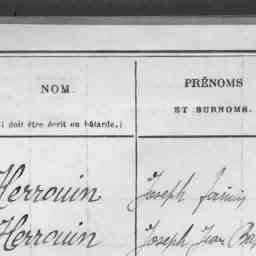 NOM. PRÉNOMS
ET SURNOMS.
doit être écrit en bâtarde.)
Herrouin Joseph
Herrouin Joseph Jean